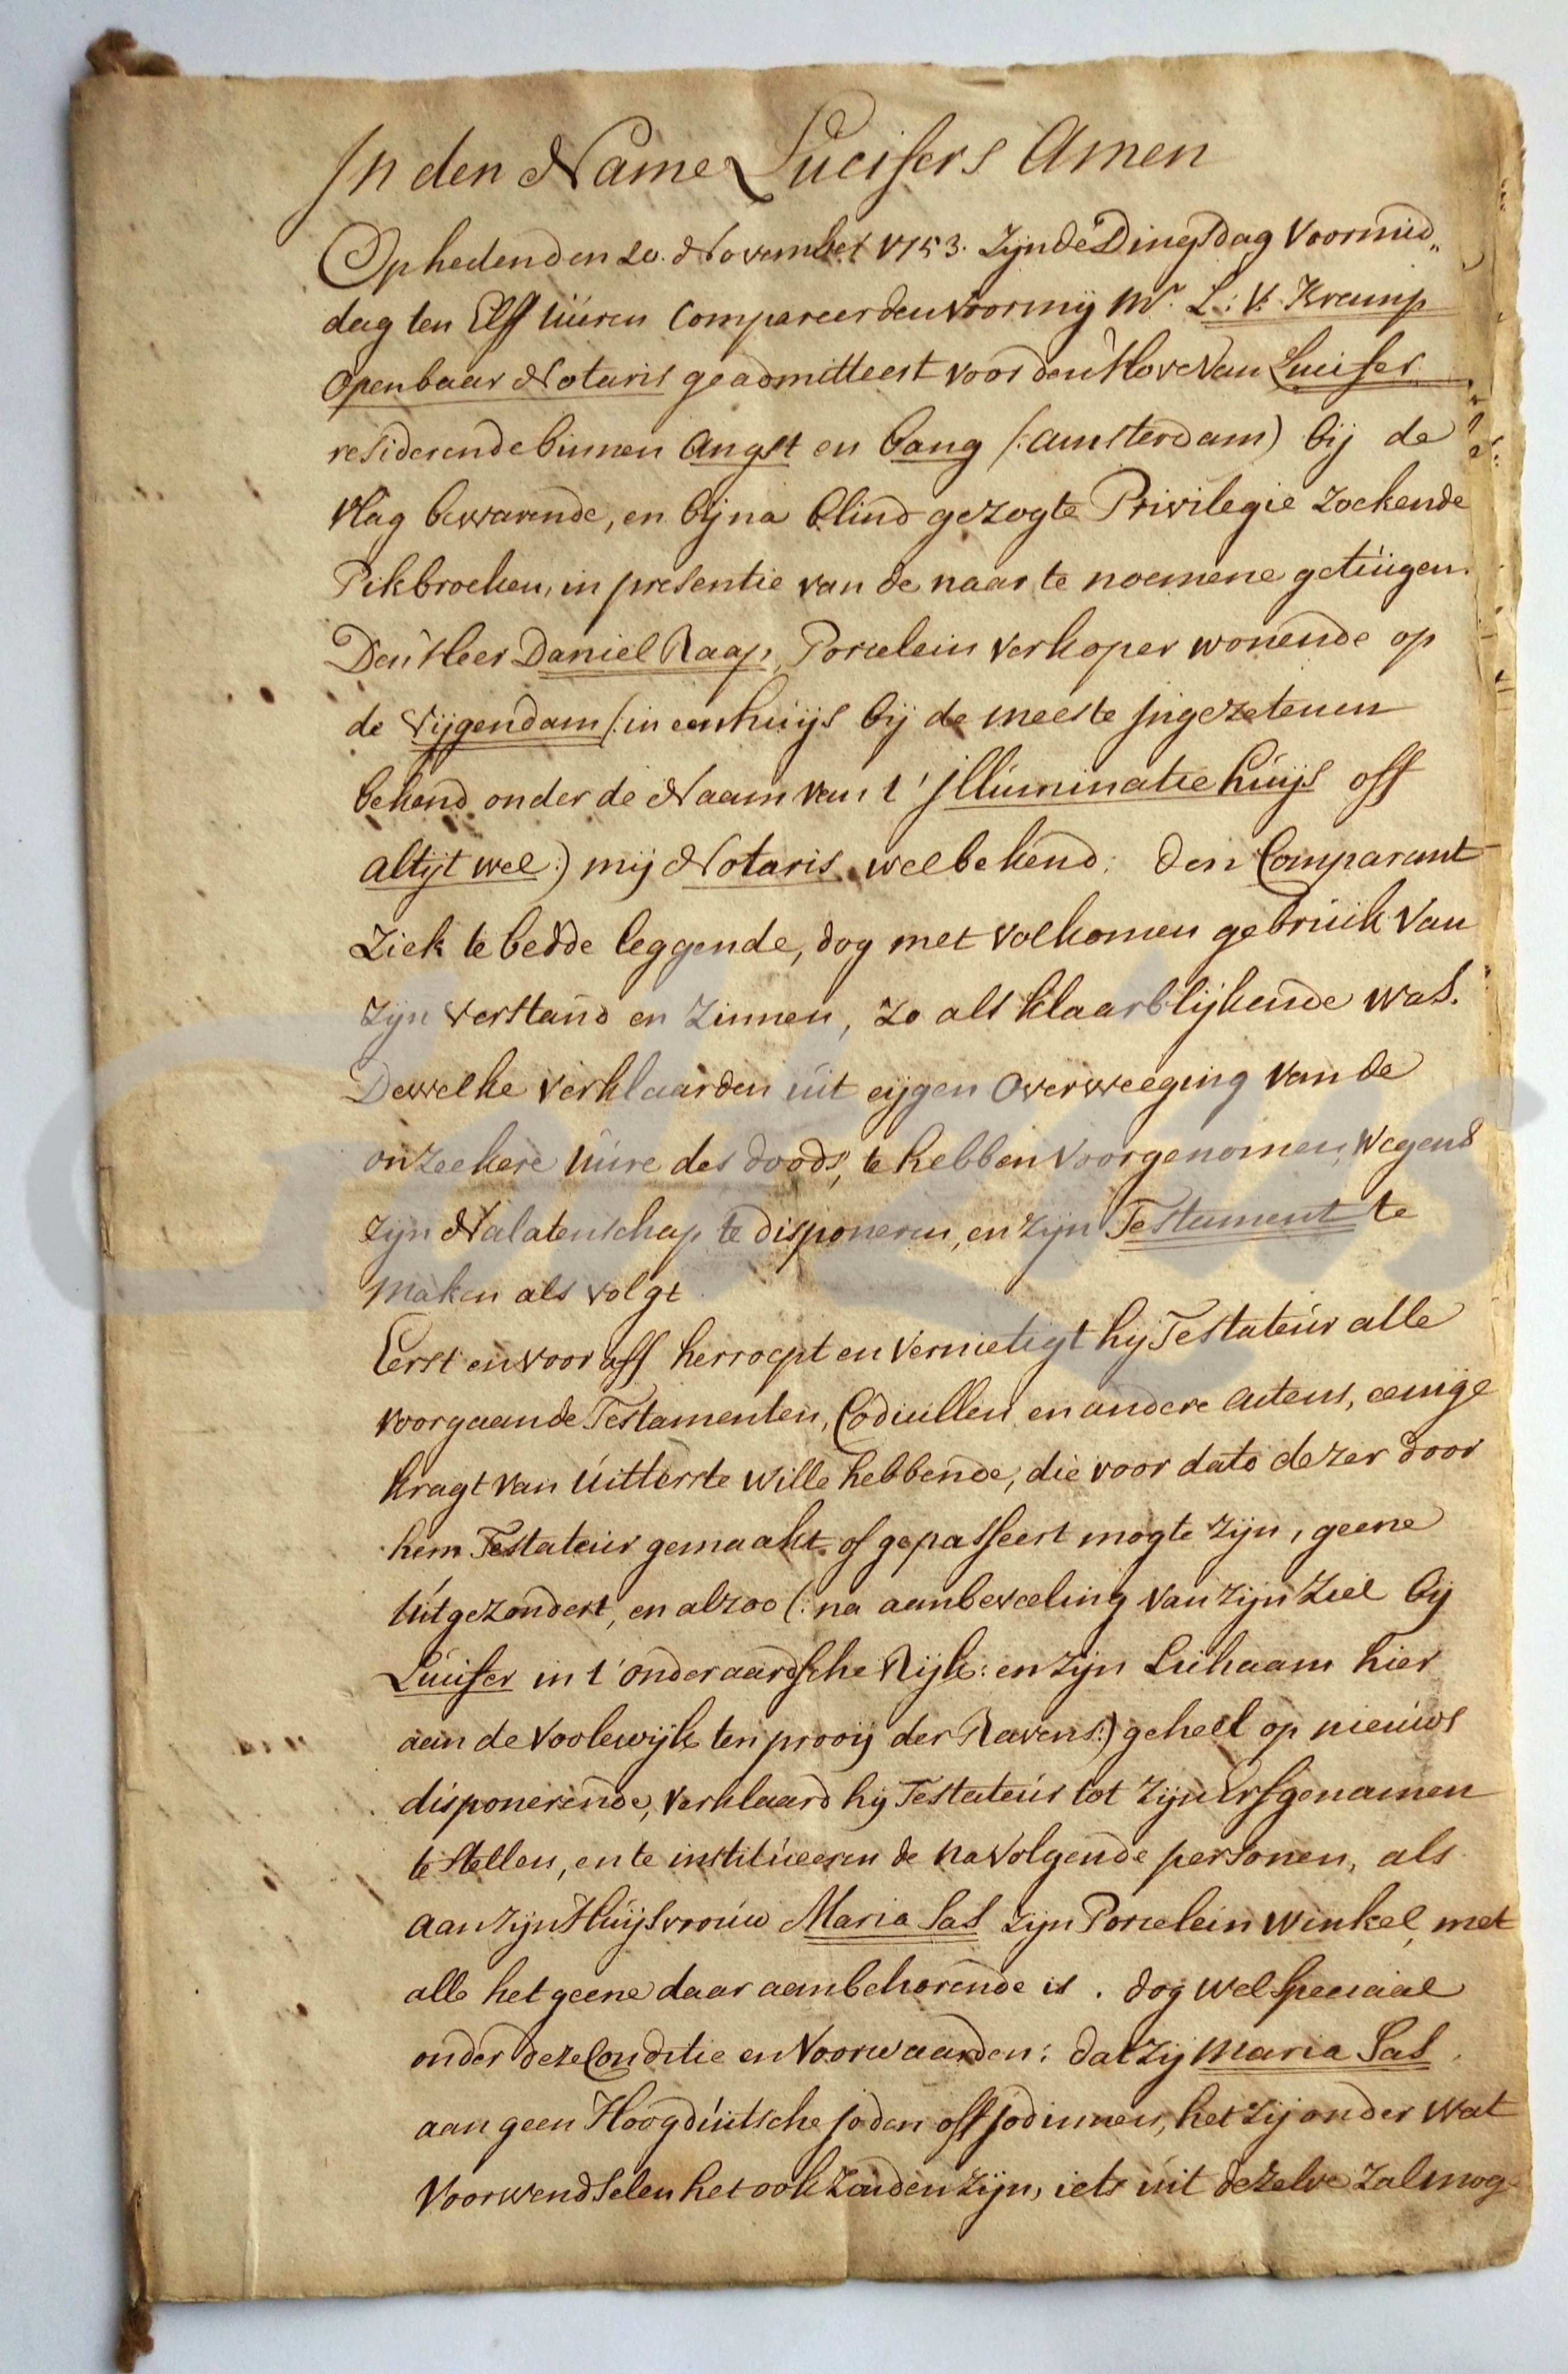 In den Name Lucifers Amen
Op heden den 20. November 1753. Zijnde Dingsdag Voormid„
dag ten Elff uúren Compareerden voor mij Mr. L: V: Kramp
Openbaar Notaris geadmitteert voor den Hove van Lucifer
residerende binnen Angst en bang (: amsterdam) bij de
vlag bewarende, en bijna blind gezogte Privilegie zoekende
Pikbroeken, in presentie van de naar te noemene getúigen.
Den Heer Daniel Raap, Porcelein verkoper wonende op
de Vijgendam (: in een húijs bij de meeste Ingezetenen
bekend onder de Naam van t' Illúminatie húijs off
altijt wel:) mij Notaris welbekend: den Comparant
Ziek te bedde leggende, dog met volkomen gebrúik van
zijn verstand en zinnen, zo als klaarblijkende was.
Dewelke verklaarden úit eijgen Overweeging van de
onzeekere úúre des doods, te hebben voorgenomen, wegens
zijn Nalatenschap te disponeren, en zijn Testament te
maken als volgt
Eerst en voor aff herroept en vernietigt hij Testateúr alle
voorgaande Testamenten, Codicillen en andere Actens, eenige
kragt van úitterste wille hebbende, die voor dato dezer door
hem Testateúr gemaakt of gepasseert mogte zijn, geene
úitgezondert, en alzoo (: na aanbeveeling van zijn Ziel bij
Lúcifer in t' onderaardsche Rijk: en zijn Lichaam hier
aan de Voolewijk ten prooij der Ravens:) geheel op nieúws
disponerende, verklaard hij Testateúr tot zijn Erfgenamen
te stellen, en te institúeeren de navolgende personen, als
aan zijn Húijsvroúw Maria Sas zijn Porcelein winkel, met
alle het geene daar aanbehorende is. dog wel speciaal
onder deze Conditie en Voorwaarden: dat zij Maria Sas
aan geen Hoogdúitsche joden off jodinnen, het zij onder wat
voorwendselen het ook zouden zijn, iets úit dezelve zal mog